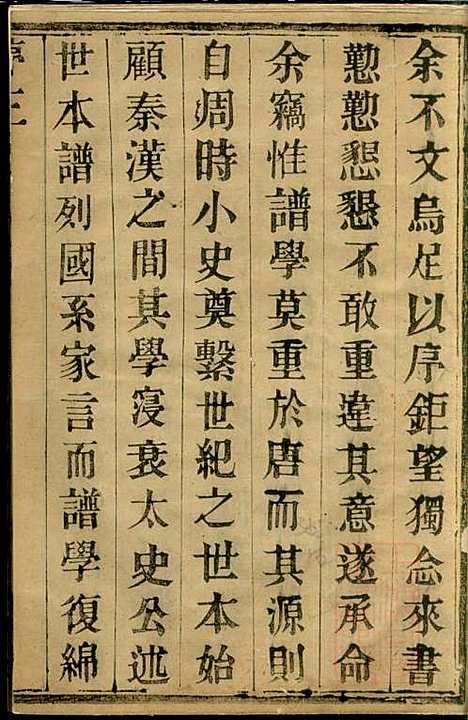 余不文烏足以序鉅望獨念來書
懃懃懇懇不敢重違其意遂承命
余竊惟譜學莫重於唐而其源則
自周時小史奠繫世紀之世本始
顧秦漢之間其學寖衰太史公述
世本譜列國系家言而譜學復綿
序